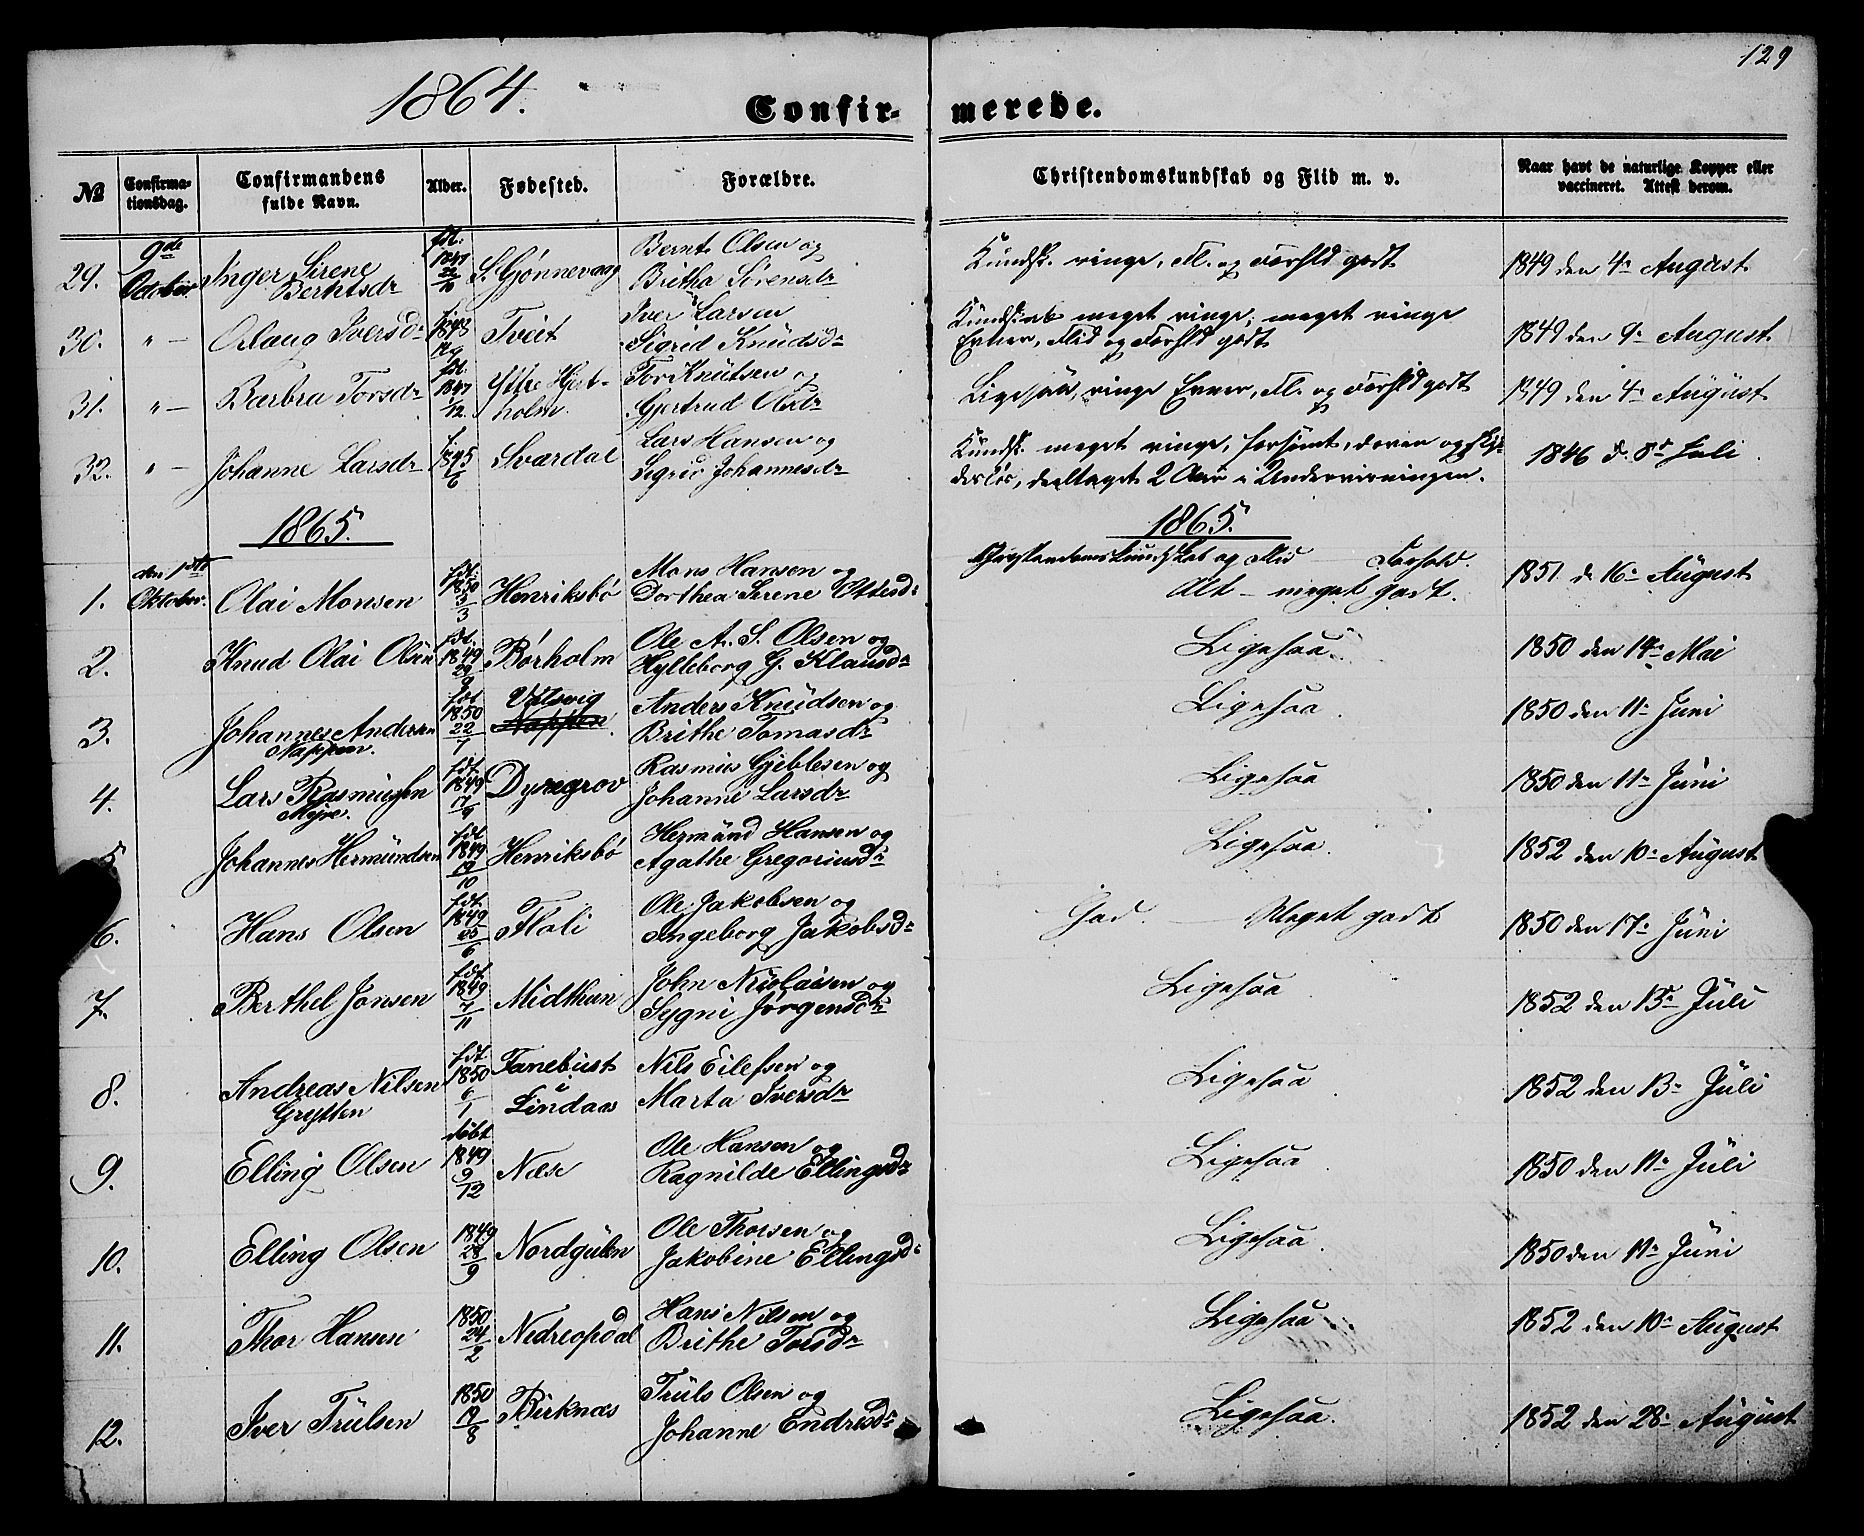 129
1864.
Confirmerede.
№ Confirmationsdag. Confirmandens fulde Navn. Alder. Fødested. Forældre. Christendomskundskab og Flid m. v. Naar havt de naturlige Kopper eller vaccineret. Attest derom.
29. 9de October Inger Sirene Berntsdr fdt. 1849 S. Gjønnevaag Bernt Olsen og Britha Sørensdr Kundsk. ringe, Fl. og Forhld godt 1849 den 4de August
30. " — Oelaug Iversdr Tveit Iver Larsen Sigrid Knudsdr Kundskab meget ringe, meget ringe Evner, Flid og Forhld godt 1849 den 9de August
31. " — Barbra Torsdr fdt. Ytre Hjertholm Tor Knutsen og Gjertrud Olsdr Ligesaa, ringe Evner, Fl. og Forhld godt 1849 den 4de August
32. " — Johanne Larsdr Svardal Lars Hansen og Sigrid Johannesdr Kundsk. meget ringe, forsømt, doven og skjødesløs, deeltaget 2 Aar i Underviisningen. 1846 d. 8de Juli
1865. 1865.
Christendomskundskab og Flid — Forhold.
1. den 1ste Oktober. Olai Monsen fdt. 1850 5/3 Henriksbø Mons Hansen og Dorthea Serene Ottesdr Alt — meget godt. 1851 d. 16de August
2. Knud Olai Olsen fdt. 1849 29/9 Børholm Ole A. S. Olsen og Hylleborg G. Klausdr Ligesaa. 1850 den 14de Mai
3. Johannes Andersen Nappen. fdt 1850 22/1 Vilsvig Nappen. Anders Knudsen og Brithe Tomasdr Ligesaa. 1850 den 11te Juni
4. Lars Rasmussen Myre. fdt 1849 17/9 Dyregrov Rasmus Gjeblesen og Johanne Larsdr Ligesaa 1850 den 11te Juni
5 Johannes Hermundsen fdt 1849 19/10 Henriksbø Hermund Hansen og Agathe Gregoriusdr Ligesaa. 1852 den 10de August
6. Hans Olsen fdt. 1849 Floli Ole Jakobsen og Ingeborg Jakobsdr God. — Meget godt 1850 den 17de Juni
7. Berthel Jonsen fdt 1849 7/11 Midthun John Nicolaisen og Sygni Jørgensdr Ligesaa 1852 den 13de Juli
8. Andreas Nilsen Grytten fdt. 1850 6/1 Fanebust i Lindaas Nils Eilefsen og Marta Iversdr Ligesaa 1852 den 13de Juli
9. Elling Olsen døbt 1849 9/12 Næse Ole Hansen og Ragnilde Ellingsdr Ligesaa 1850 den 11te Juli
10. Elling Olsen 1849 28/9 Nordgulen Ole Thorsen og Jakobine Ellingsdr Ligesaa. 1850 den 11te Juni
11. Thor Hansen 1850 24/2 Nedreopdal Hans Nilsen og Brithe Torsdr Ligesaa 1852 den 10de August
12. Iver Trulsen 1850 19/8 Birknæs Truls Olsen og Johanne Endresdr Ligesaa. 1852 den 28de August